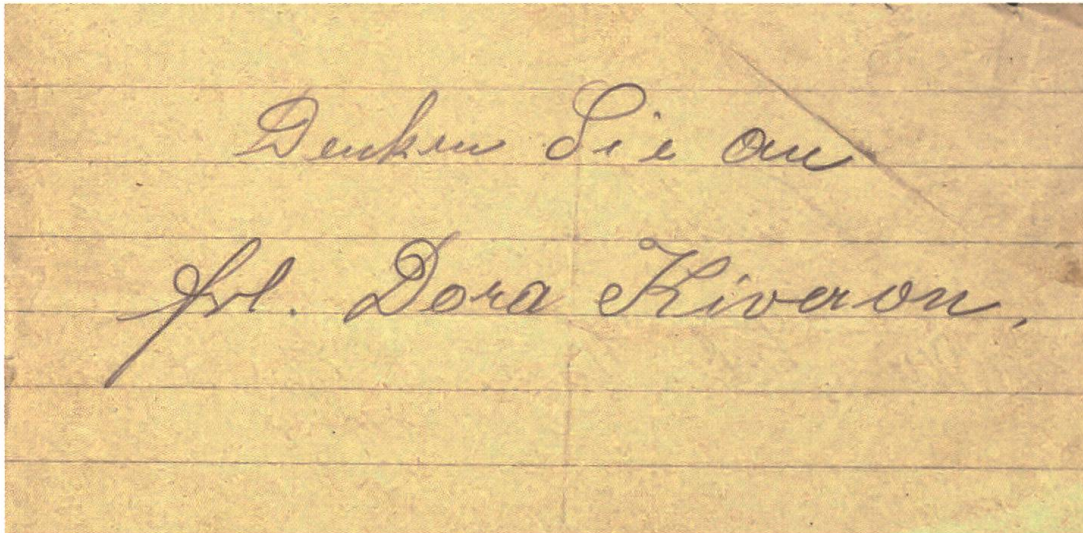 Denken Sie an
frl. Dora Kiveron.